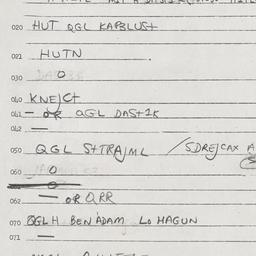 020 HUT QGL KAPBLUST
021 HUTN
030 O
040 KNEJCT
041 — OR QGL DASTIK
042 —
050 QGL STTRAJML / SDREJCAX A
060 O
062 — OR QRR
070 QGLH BEN ADAM LO HAGUN
071 —